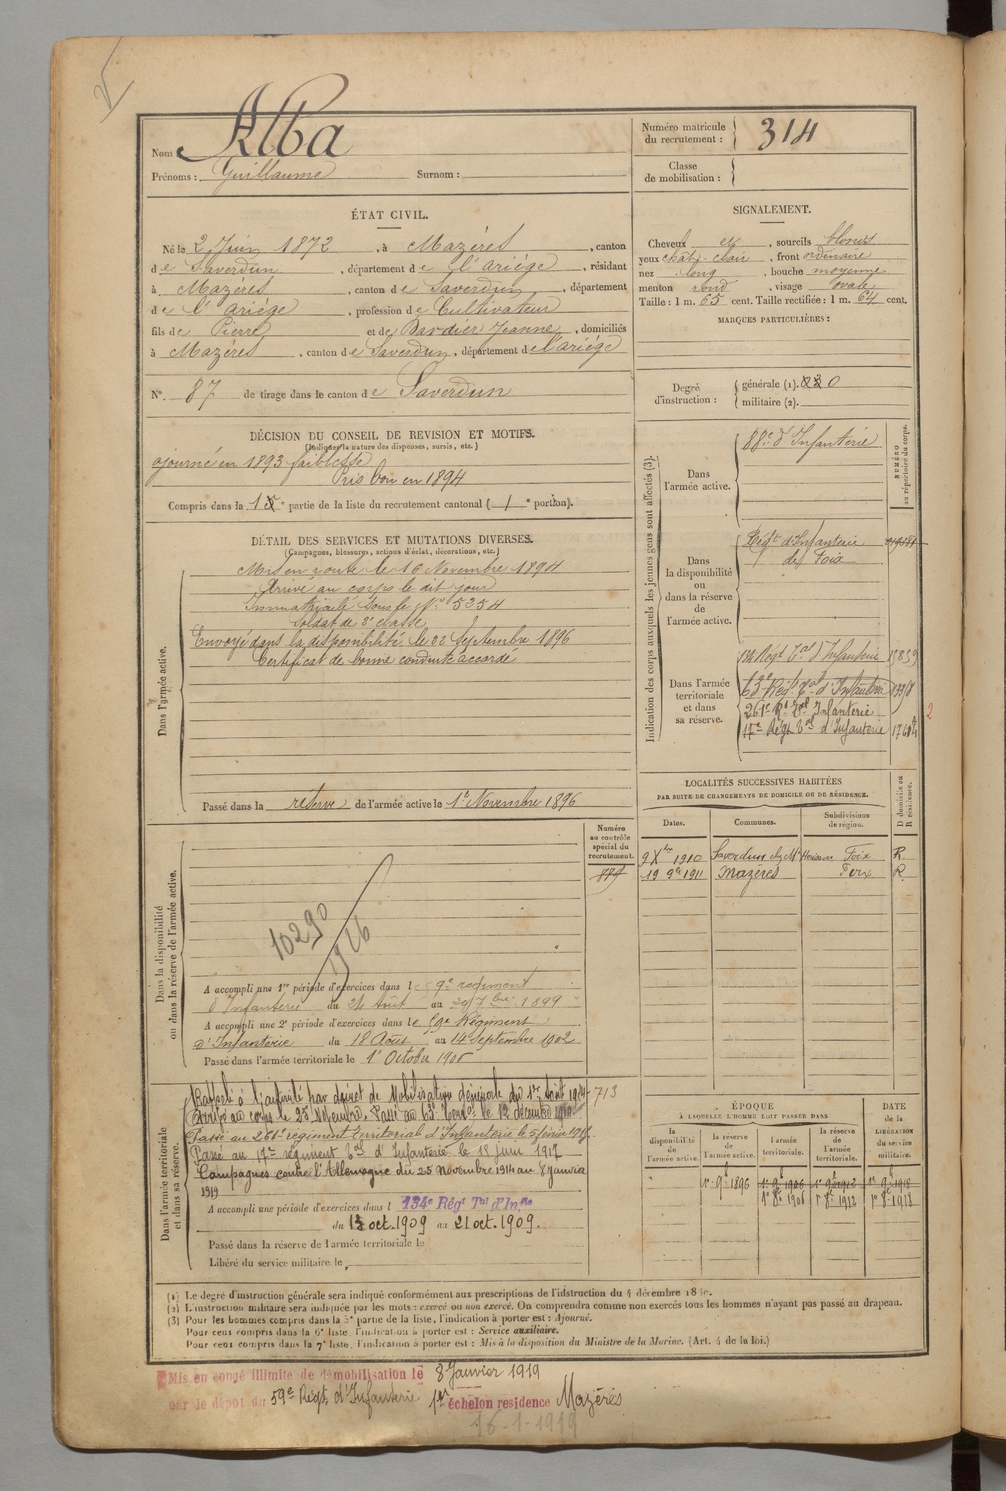 Nom Alba
Prénoms : Guillaume Surnom :
Numéro matricule du recrutement : 314
Classe de mobilisation :
ÉTAT CIVIL.
Né le 2 Juin 1872, à Mazères, canton
de Saverdun, département de l'ariége, résidant
à Mazères, canton de Saverdun, département
de l'ariége, profession de Cultivateur
fils de Pierre et de Bardier Jeanne, domiciliés
à Mazères, canton de Saverdun, département de l'ariége
N°. 87 de tirage dans le canton de Saverdun
SIGNALEMENT.
Cheveux et, sourcils blonds
yeux chât-clair, front ordinaire
nez long, bouche moyenne
menton rond, visage ovale
Taille : 1 m. 65 cent. Taille rectifiée : 1 m. 64 cent.
MARQUES PARTICULIÈRES :
Degré d'instruction : générale (1). 0
militaire (2).
DÉCISION DU CONSEIL DE REVISION ET MOTIFS.
(Indiquer la nature des dispenses, sursis, etc.)
ajourné en 1893 faiblesse
Pris bon en 1894
Compris dans la 1e partie de la liste du recrutement cantonal (1e portion).
DÉTAIL DES SERVICES ET MUTATIONS DIVERSES.
(Campagnes, blessures, actions d'éclat, décorations, etc.)
Dans l'armée active.
Mis en route le 16 Novembre 1894
Arrivé au corps le dit jour
Immatriculé sous le No 5254
Soldat de 2e classe
Envoyé dans la disponibilité le 22 Septembre 1896
Certificat de bonne conduite accordé
Passé dans la réserve de l'armée active le 1er Novembre 1896
Indication des corps auxquels les jeunes gens sont affectés (3).
NUMÉRO au répertoire du corps.
Dans l'armée active.
88e d'Infanterie
Dans la disponibilité ou dans la réserve de l'armée active.
Régt d'Infanterie
de Foix
Dans l'armée territoriale et dans sa réserve.
134 Régt Tal d'Infanterie
63e Régt Tal d'Infanterie
261e Rt Tal Infanterie
17e Régt Tal d'Infanterie
2
LOCALITÉS SUCCESSIVES HABITÉES
PAR SUITE DE CHANGEMENTS DE DOMICILE OU DE RÉSIDENCE.
Dates. Communes. Subdivisions de région. D domicile ou R résidence.
9 Xbre 1910 Saverdun chez Mr Foix R.
19 9re 1911 Mazères Foix R.
Numéro au contrôle spécial du recrutement.
Dans la disponibilité ou dans la réserve de l'armée active.
10290
1916
A accompli une 1re période d'exercices dans le 59e régiment
d'Infanterie du 21 Août au 7bre 1899
A accompli une 2e période d'exercices dans le 59e Régiment
d'Infanterie du 18 Août au 14 Septembre 1902
Passé dans l'armée territoriale le 1er Octobre 1906
Dans l'armée territoriale et dans sa réserve.
Rappelé à l'activité par décret de Mobilisation Générale du 1er Août 1914 713
Arrivé au corps le 25 Novembre. Passé au 63e Territorial le 12 décembre
Passé au 261e régiment Territorial d'Infanterie le 5 février 1917.
Passé au 17e régiment Tal d'Infanterie le 15 Juin 1917
Campagnes contre l'Allemagne du 25 Novembre 1914 au 8 janvier
1919
A accompli une période d'exercices dans l 134e Régt Tal d'Infie
du 13 oct. 1909 au 21 oct. 1909.
Passé dans la réserve de l'armée territoriale le
Libéré du service militaire le
ÉPOQUE
À LAQUELLE L'HOMME DOIT PASSER DANS
DATE de la LIBÉRATION du service militaire.
la disponibilité de l'armée active. la réserve de l'armée active. l'armée territoriale. la réserve de l'armée territoriale.
1er 9e 1896 1er 9e 1906 1er 9e 1912 1er 9e 1918
1er 8e 1906 1er 8e 1912 1er 8e 1918
(1) Le degré d'instruction générale sera indiqué conformément aux prescriptions de l'instruction du 4 décembre
(2) L'instruction militaire sera indiquée par les mots : exercé ou non exercé. On comprendra comme non exercés tous les hommes n'ayant pas passé au drapeau.
(3) Pour les hommes compris dans la 5e partie de la liste, l'indication à porter est : Ajourné.
Pour ceux compris dans la 6e liste, l'indication à porter est : Service auxiliaire.
Pour ceux compris dans la 7e liste, l'indication à porter est : Mis à la disposition du Ministre de la Marine. (Art. 4 de la loi.)
Mis en congé illimité de démobilisation le 8 Janvier 1919
par le dépôt du 59e Régt. d'Infanterie 1er échelon residence Mazères
16-1-1919